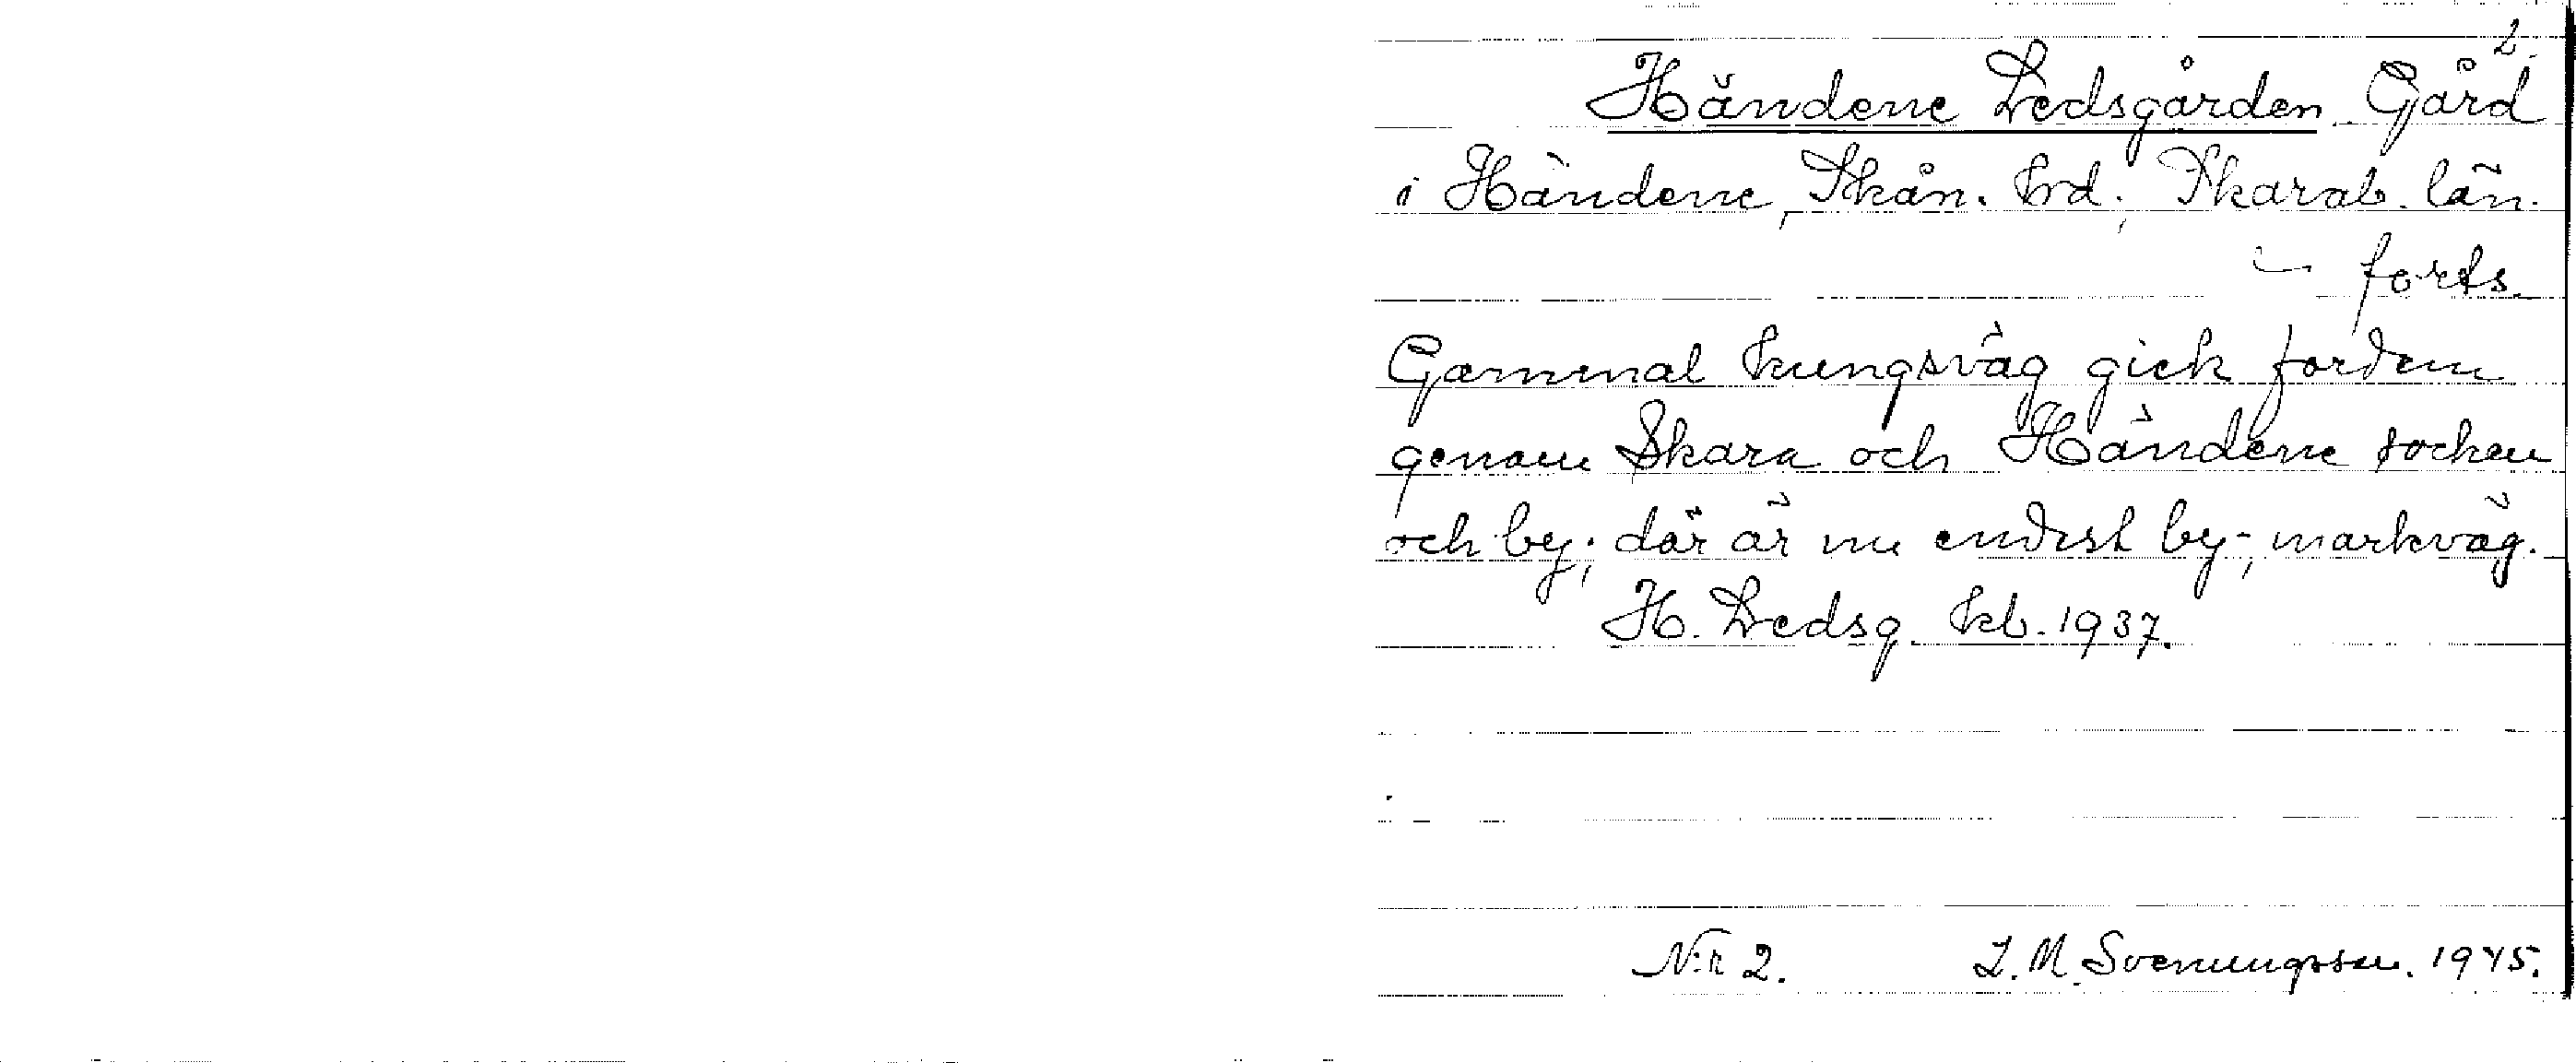 2.
Händene Ledsgården. Gård
i Händene, Skån. hrd; Skarab. län.
forts.
Gammal kungsväg gick fordem
genom Skara och Händene socken
och by; där är nu endast by-, markväg.
H. Ledsg. kb. 1937.
N:r 2. L. M. Svenungsson. 1945.